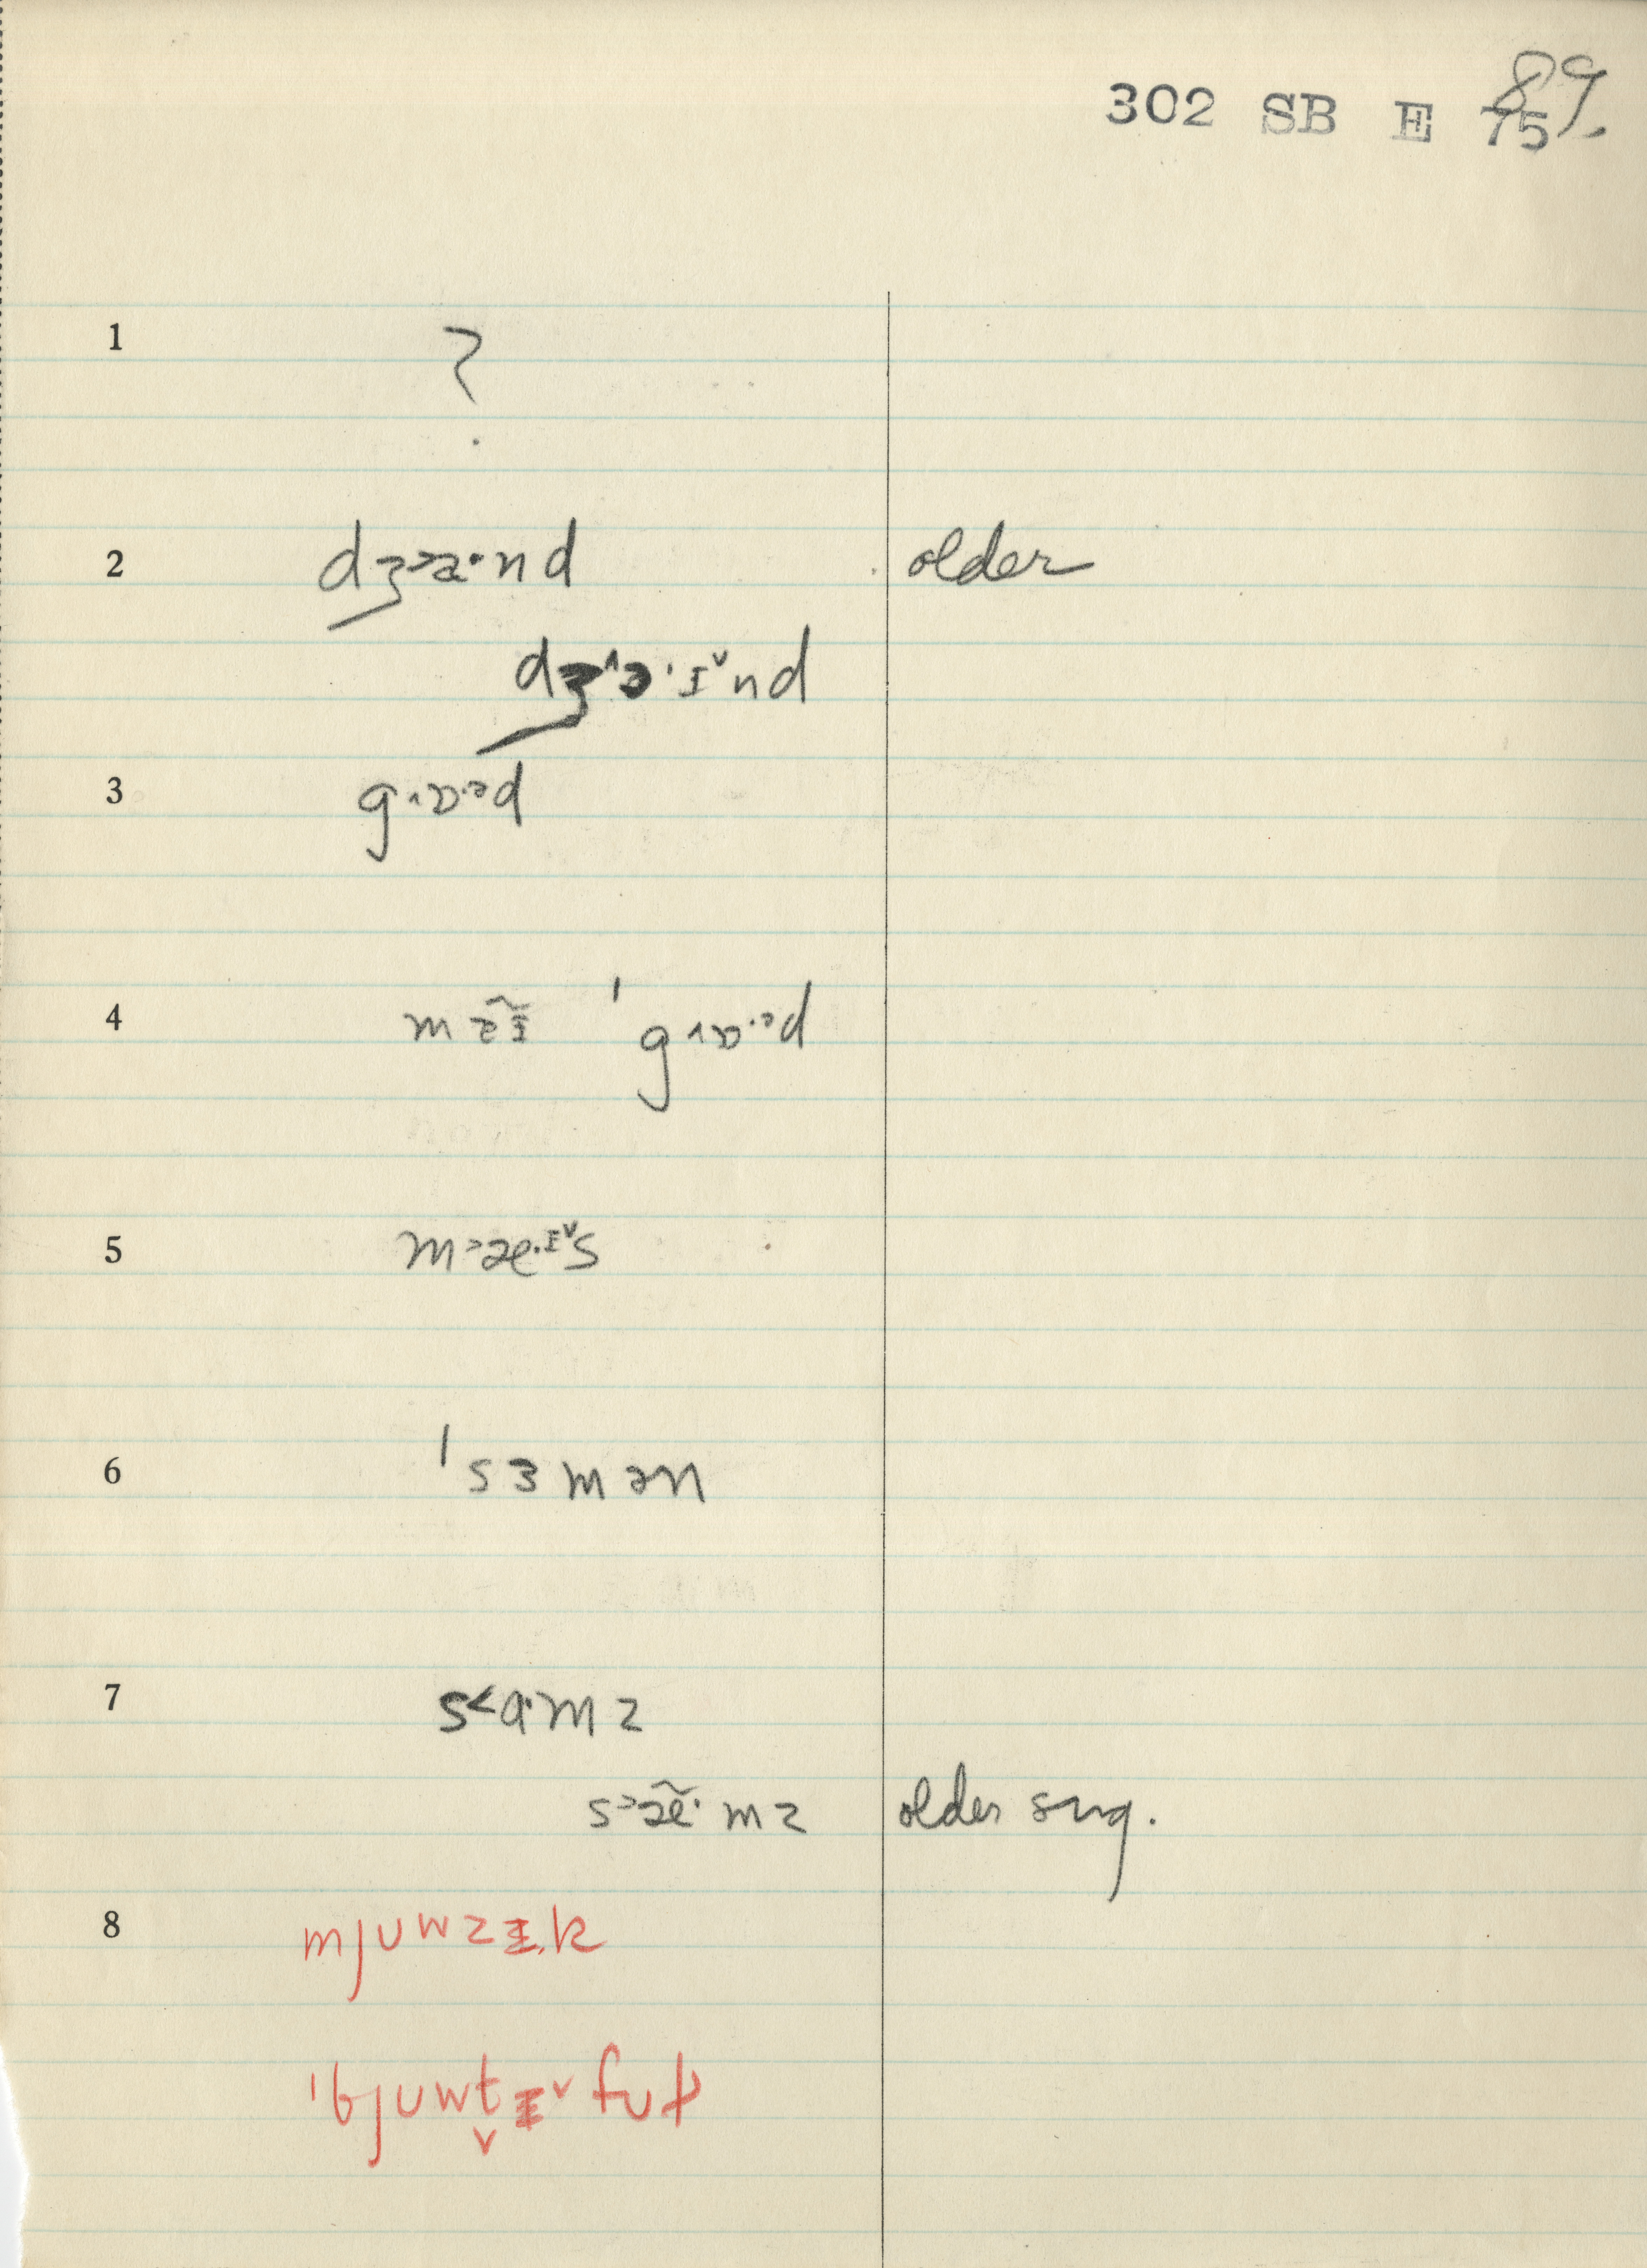 302 SB E 75 89.
1 ?
2 dʒ˃a·nd older
dʒ˄ɔ·ɪ˅nd
3 g˄ɒ·ᵊd
4 mə̃ɪ̃ ˈg˄ɒ·ᵊd
5 m˃æ·ɪ˅s
6 ˈsɜmən
7 s˂ɑ·mz
s˃æ̃·mz older sug.
8 mjuwzɪk
ˈbjuwt̬ɪ˅fʊɫ